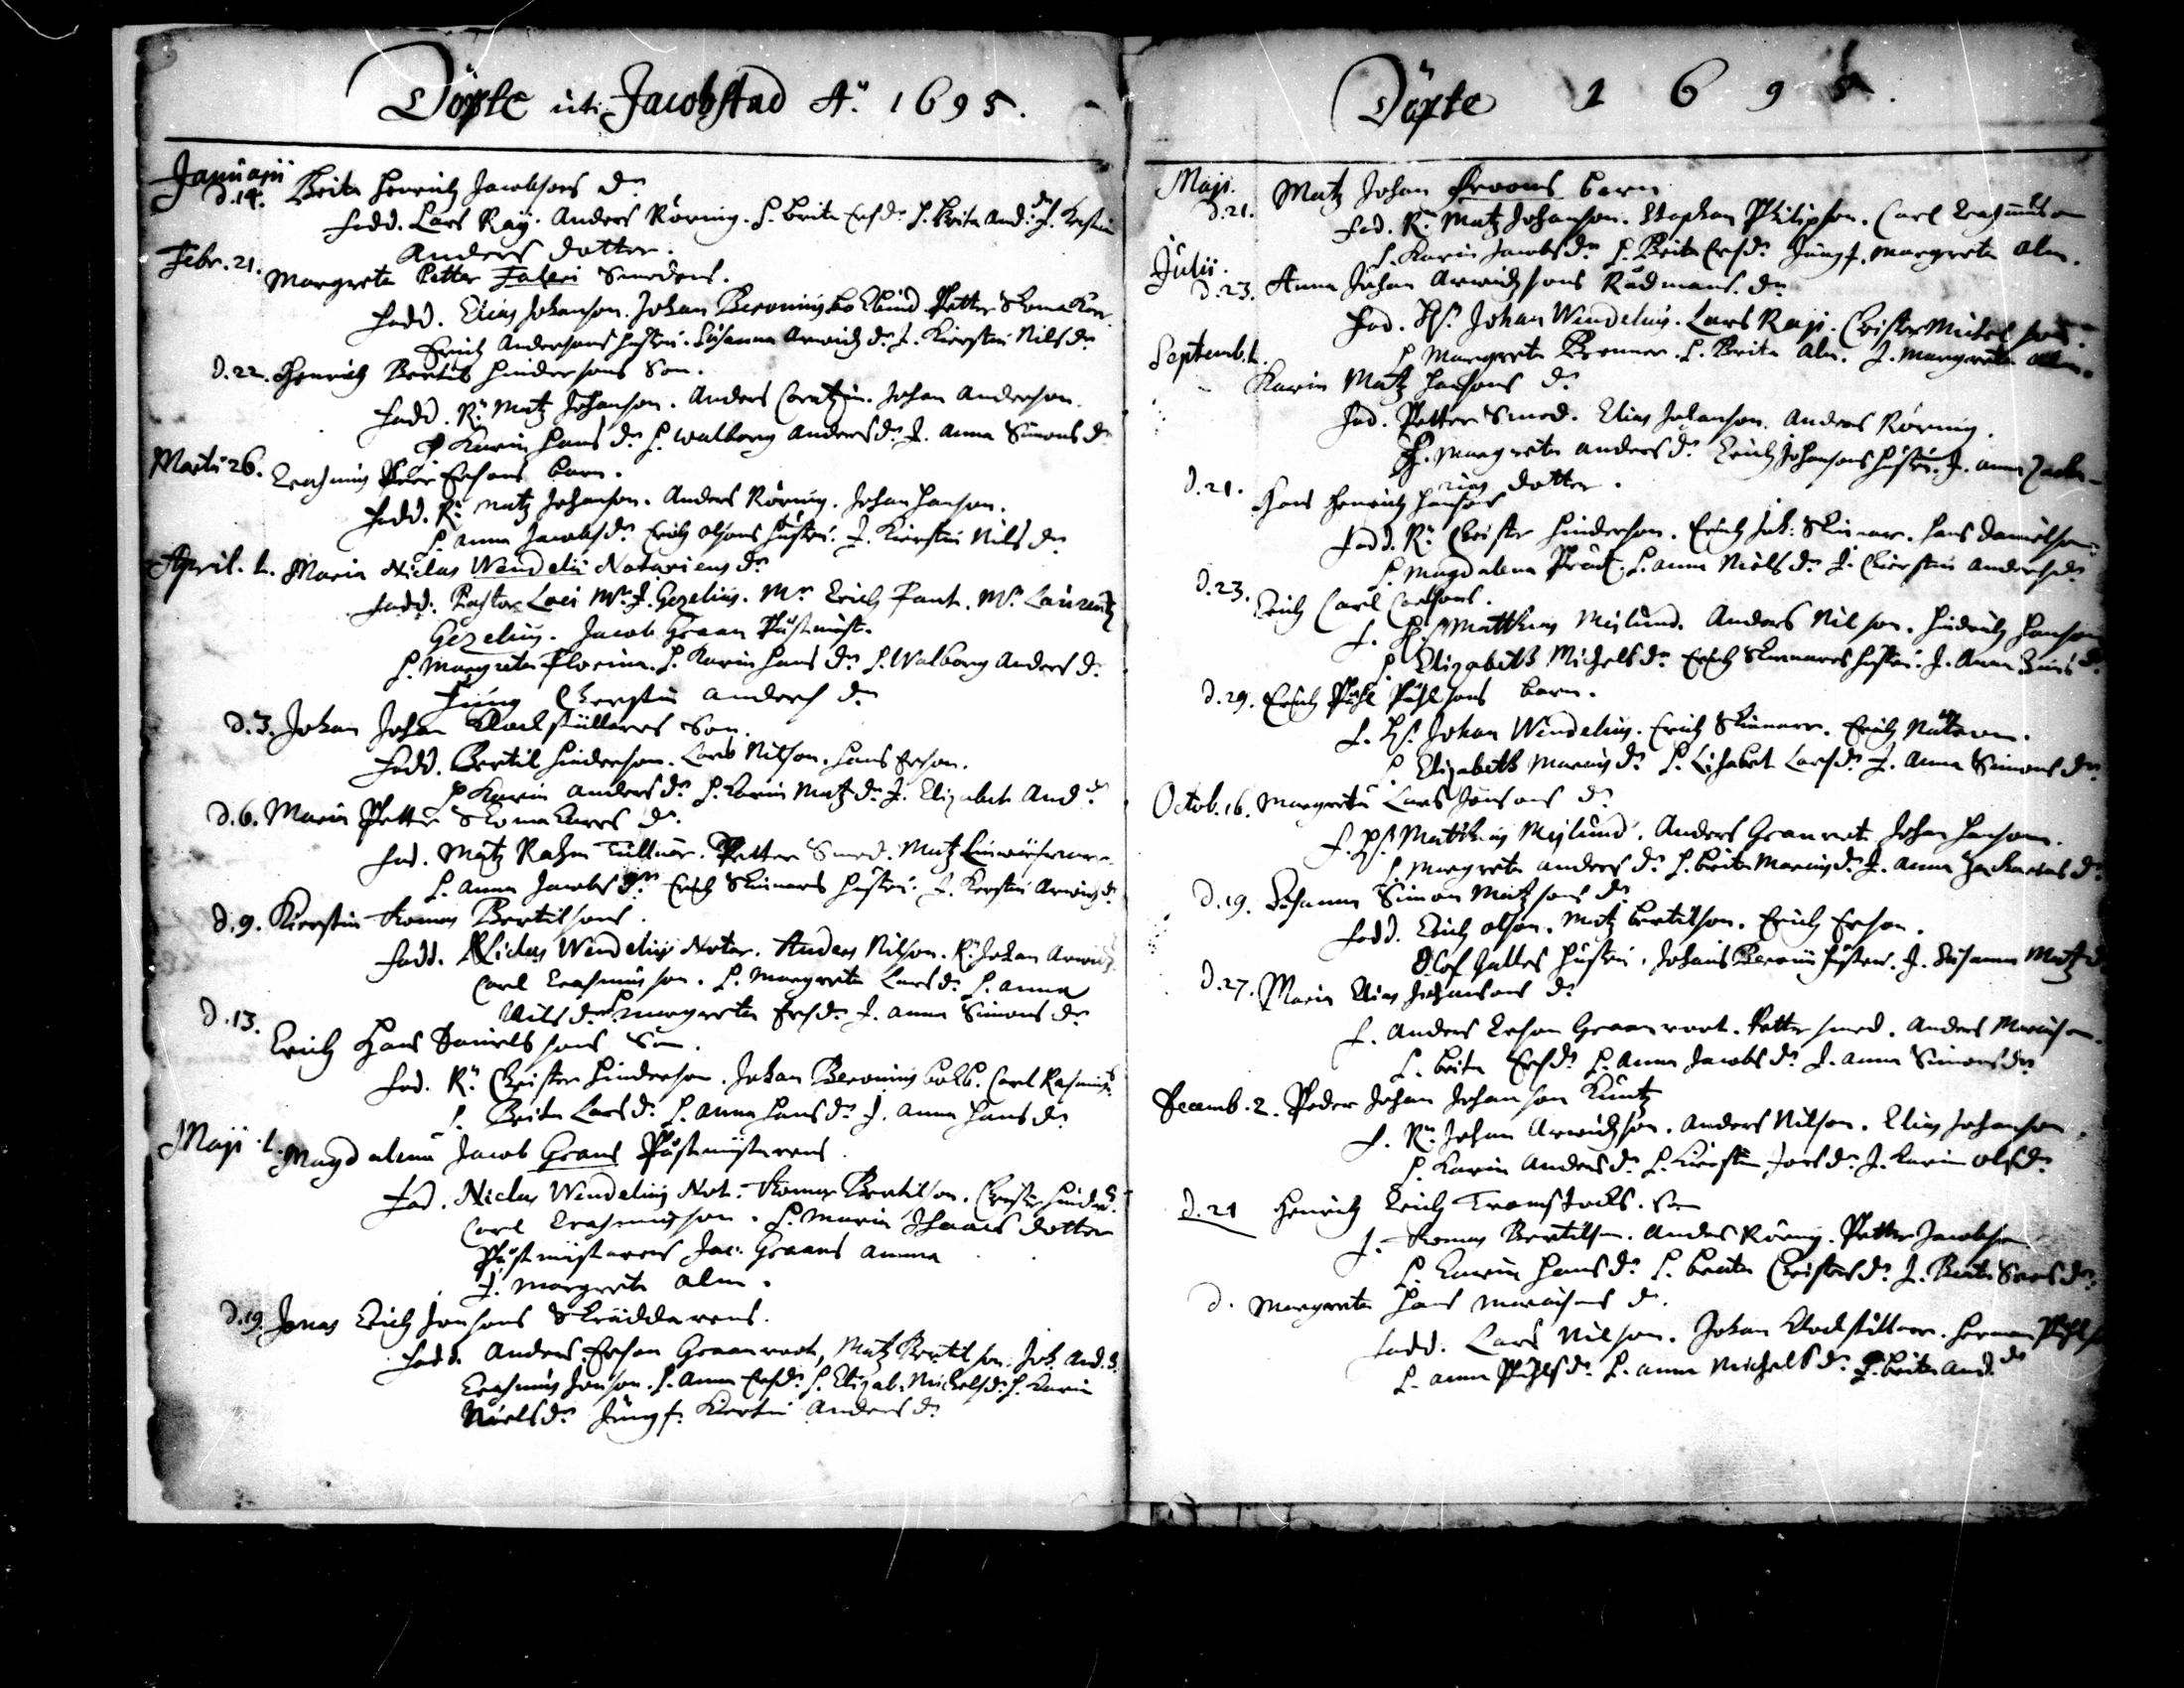 Döpte uti Jacobstad Aō 1695.
Januarii
d. 14. Brita Henrich Jacobsons dr
Fadd. Lars Raij. Anders Röring. H. Brita Ersdr H. Brita And: dr J. Kerstin
Anders dotter.
Febr. 21. Margreta Petter Faleri Smedens.
Fadd. Elias Johanson. Johan Beronius Petter Skomakar
Erich Andersons hustru. Susanna Arwidz dr J. Kierstin Nils dr
d. 22. Henrich Bertil Hindersons Son.
Fadd. R: Matz Johanson. Anders Johan Anderson.
H Karin Hans dr H. Walborg Anders dr J. Anna Simons dr
Martii 26. Erasmus Peer Ersons barn.
Fadd. R: Matz Johanson. Anders Röring. Johan Hanson.
H. Anna Jacobs dr Erich Olsons hustru. J. Kierstin Nils dr
April. 1. Maria Niclas Wendelii Notariens dr
Fadd. Pastor Loci Mr J. Gezelius. Mr Erich Fant. Mr Laurentz
Gezelius. Jacob Graan Påstmäst.
H. Margreta Florina. H. Karin Hans dr H. Walborg Anders dr
Jung Kerstin Anders dr
d. 3. Johan Johan Klockställares Son.
Fadd. Bertil Hinderson. Lars Nilson. Hans Erson.
H Karin Anders dr H. Karin Matz dr J. Elizabet And dr
d. 6. Maria Petter Skomakares dr
Fad. Matz Rahm Tullnär. Petter Smed. Matz
H. Anna Jacobs dr Erich Skinnars hustru. J. Kerstin Arwidz dr
d. 9. Kierstin Thomas Bertilsons.
Fadd. Niclas Wendelius Notar. Anders Nilson. R: Johan Arwidz
Carl Erasmusson. H. Margreta Lars dr H. Anna
Nils dr H Margreta Ers dr J. Anna Simons dr
d. 13. Erich Hans Danielssons Son.
Fad. R: Christer Hinderson. Johan Beronius Carl Rasmus
H. Brita Lars dr H. Anna Hans dr J. Anna Hans dr
Maji. 1. Magdalena Jacob Grans Påstmästarens.
Fad. Niclas Wendelius Not. Thomas Bertilson. Christer Hinders
Carl Erasmusson. H. Maria Isaacs dotter
Påstmästarens Jac: Graans amma
J. Margreta Alm.
d. 19. Jonas Erich Jonsons Skräddarens.
Fadd. Anders Erson Graanroot, Matz Bertilson. Joh. And. S.
Erasmus Jonson. H. Anna Ersdr H. Elizab. Michelsdr H. Karin
Nielsdr Jungf. Kierstin Anders dr
Döpte 1695.
Maji.
d. 21. Matz Johan barn
Fad. R: Matz Johanson. Staphan Philipson. Carl Erasmuson
H. Karin Jacobsdr H. Brita Ersdr Jungf. Margreta Alm.
Julii.
d. 23. Anna Johan Arwidhsons Rådmans. dr
Fad. Hr Johan Wendelius. Lars Raji. Christer Michelson.
H Margreta Brenner. H. Brita Alm. J. Margreta Alm.
Septemb. 1.
Karin Matz Hansons dr
Fad. Petter Smed. Elias Johanson. Anders Röring.
H. Margreta Anders dr Erich Johansons hustru. J. Anna Zacha-
rias dotter.
d. 21. Hans Henrich Hansons
Fadd. R: Christer Hinderson. Erich Joh: Skinnar. Hans Danielson
H. Magdalena H. Anna Niels dr J. Kierstin Andersdr
d. 23. Erich Carl Carlsons.
F. Hr Matthias Mejlund. Anders Nilson. Hindrich Hanson
H. Elizabeth Michels dr Erich Skinnares hustru. J. Anna
d. 29. Erich Påhl Påhlsons barn.
F. Hr Johan Wendelius. Erich Skinnare. Erich
H. Elizabeth Marcus dr H. Lisabet Larsdr J. Anna Simons dr
Octob. 16. Margreta Lars Jönsons dr
F. Hr Matthias Mejlund. Anders Granrot. Johan Hanson.
H. Margreta Anders dr H. Brita Marcus dr J. Anna Zacharias dr
d. 19. Susanna Simon Matzsons dr
Fadd. Erich Olson. Matz Bertilson. Erich Erson.
Olof hustru. Johans Beronii hustru. J. Susanna Matz d
d. 27. Maria Elias Johansons dr
F. Anders Erson Graanroot. Petter Smed. Anders
H. Brita Ersdr H. Anna Jacobs dr J. Anna Simonsdr
Decemb. 2. Peder Johan Johanson Kuntz
F. R: Johan Arwidhson. Anders Nilson. Elias Johanson.
H. Karin Anders dr H. Kierstin dr J. Karin Olsdr
d. 21 Henrich Erich Son
F. Thomas Bertilson. Anders Röring. Petter Jacobson
H. Karin Hansdr H. Brita Christersdr J. Brita dr
d. Margreta Hans dr.
Fadd. Lars Nilson. Johan Klockställare. Herman Påhls
H. Anna Påhlsdr H. Anna Michels dr J. Brita And. dr